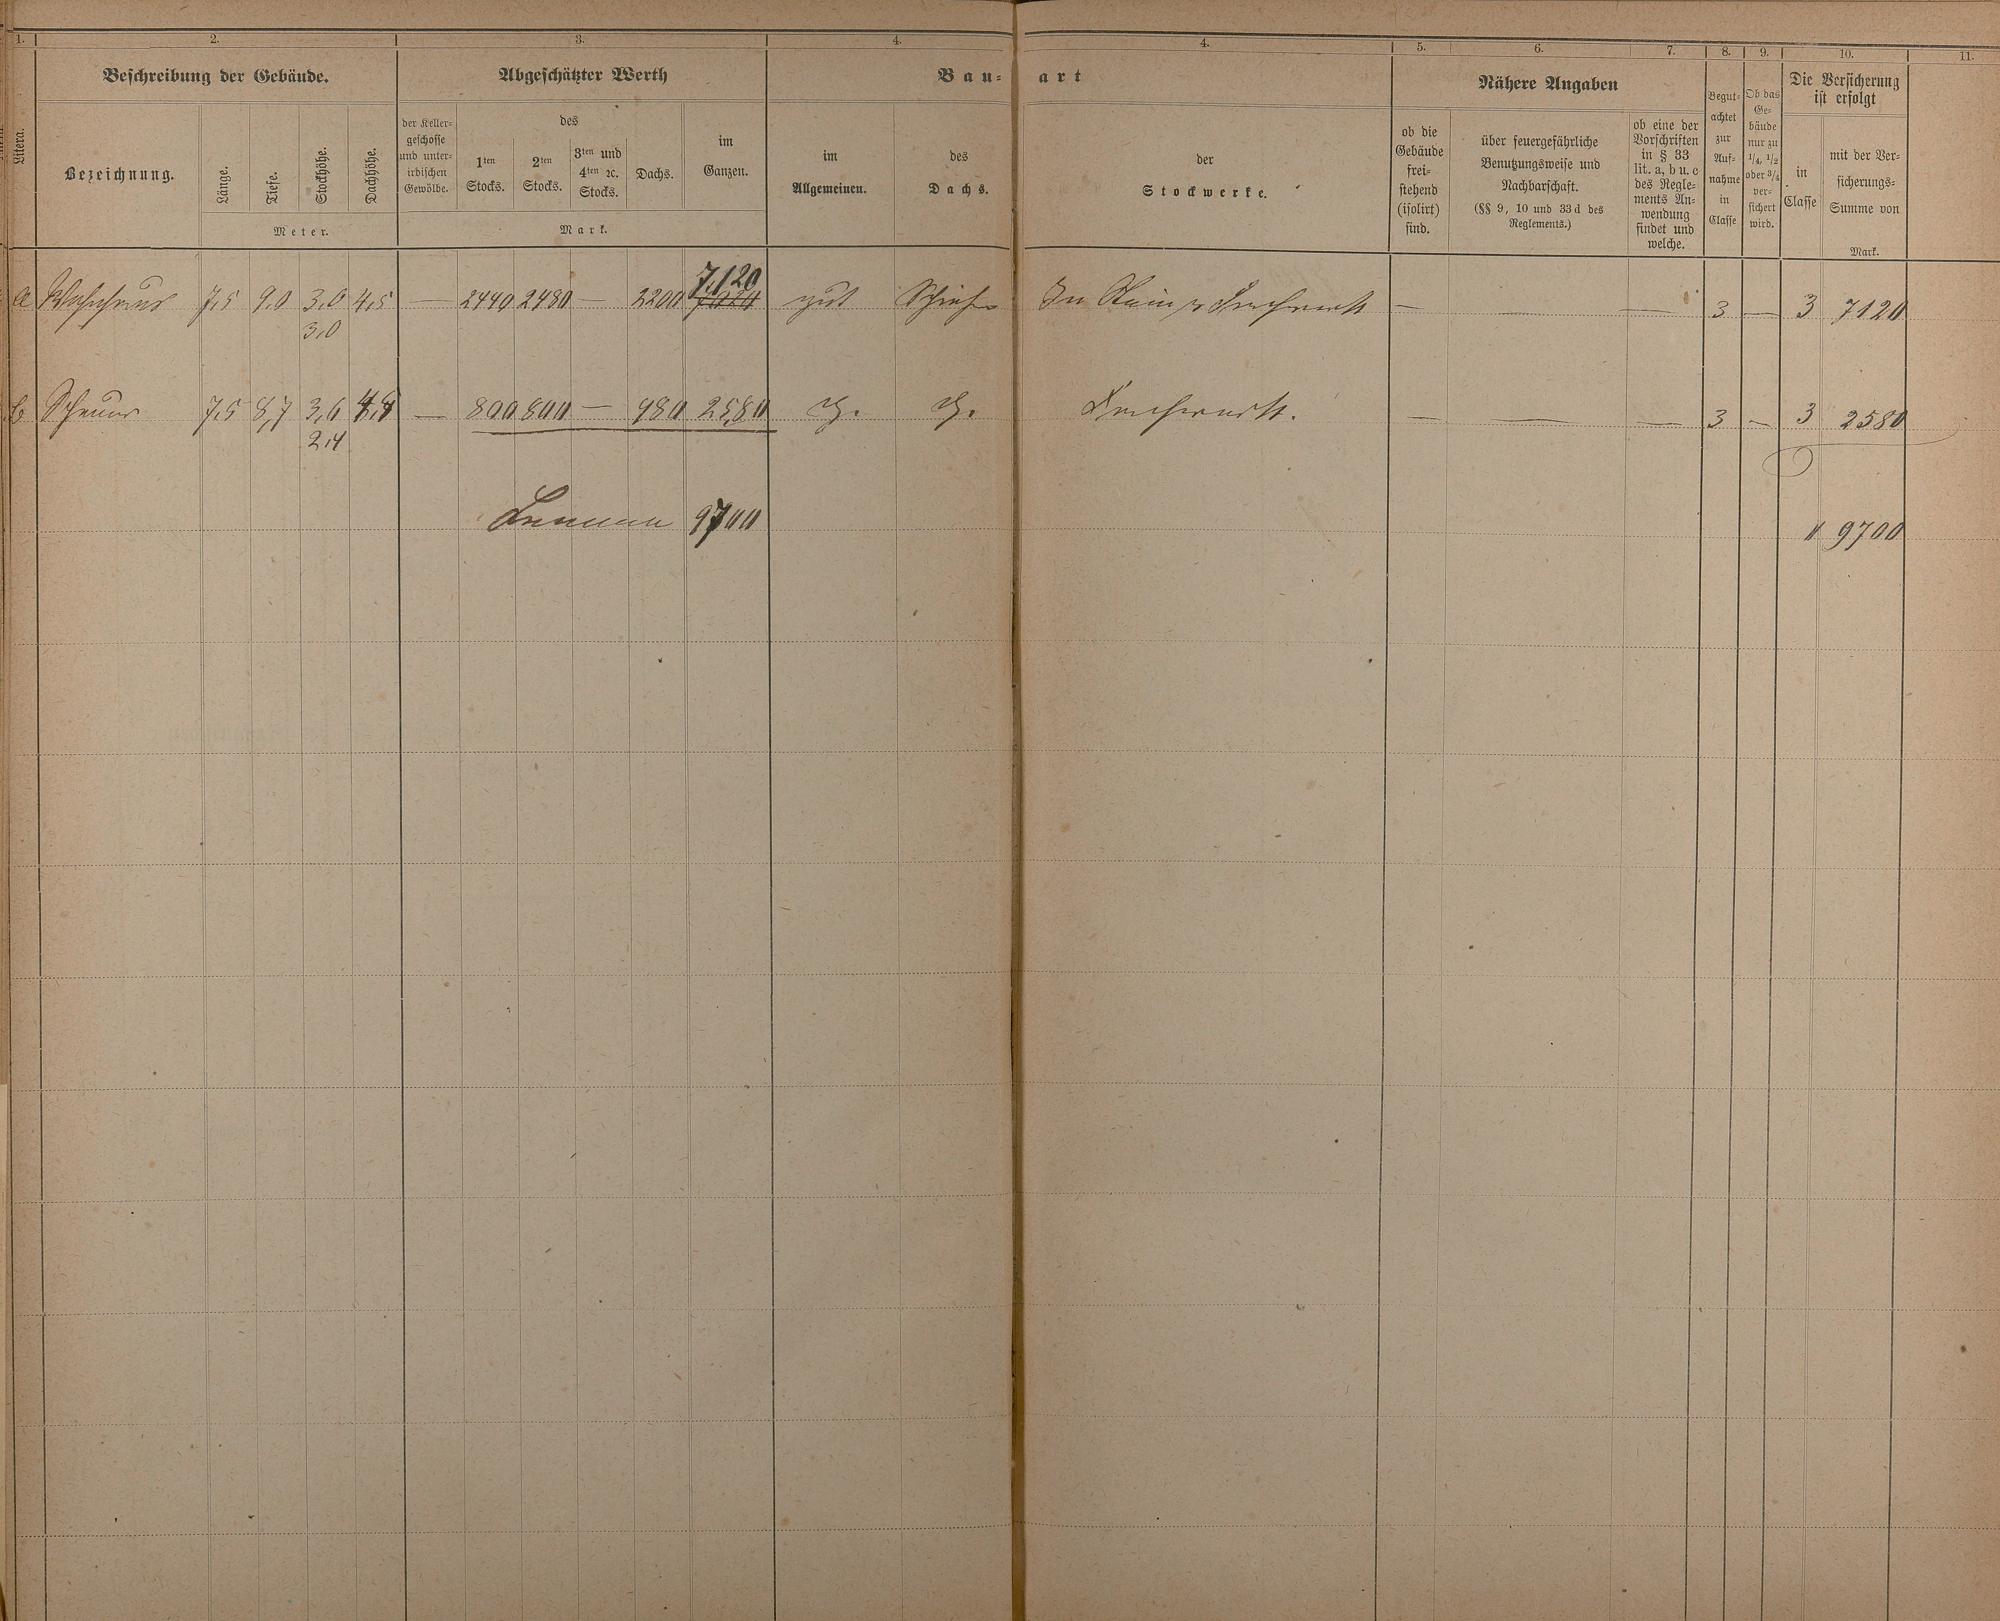 1. 2. 3. 4. 4. 5. 6. 7. 8. 9. 10. 11.
Litera.
Beschreibung der Gebäude.
Bezeichnung.
Länge.
Tiefe.
Stockhöhe.
Dachhöhe.
Meter.
Abgeschätzter Werth
der Keller-
geschosse
und unter-
irdischen
Gewölbe.
des
1ten
Stocks.
2ten
Stocks.
3ten und
4ten 2c.
Stocks.
Dachs.
im
Ganzen.
Mark.
Bau-
art
im
Allgemeinen.
des
Dachs.
der
Stockwerke.
Nähere Angaben
ob die
Gebäude
frei-
stehend
(isolirt)
sind.
über feuergefährliche
Benutzungsweise und
Nachbarschaft.
(§§ 9, 10 und 33 d des
Reglements.)
ob eine der
Vorschriften
in § 33
lit. a, b u. c
des Regle-
ments An-
wendung
findet und
welche.
Begut-
achtet
zur
Auf-
nahme
in
Classe
Ob das
Ge-
bäude
nur zu
1/4, 1/2
oder 3/4
ver-
sichert
wird.
Die Versicherung
ist erfolgt
in
Classe
mit der Ver-
sicherungs-
Summe von
Mark.
7,120
a Wohnhaus 7,5 9,0 3,0 4,5 — 2440 2480 — 2200 gut Schiefer In Stein u Fachwerk — — — 3 — 3 7120
3,0
b Scheuer 7,5 8,7 3,6 — 800 800 — 980 2580 Fachwerk. — — — 3 — 3 2580
2,4
Summa 9700
" 9700